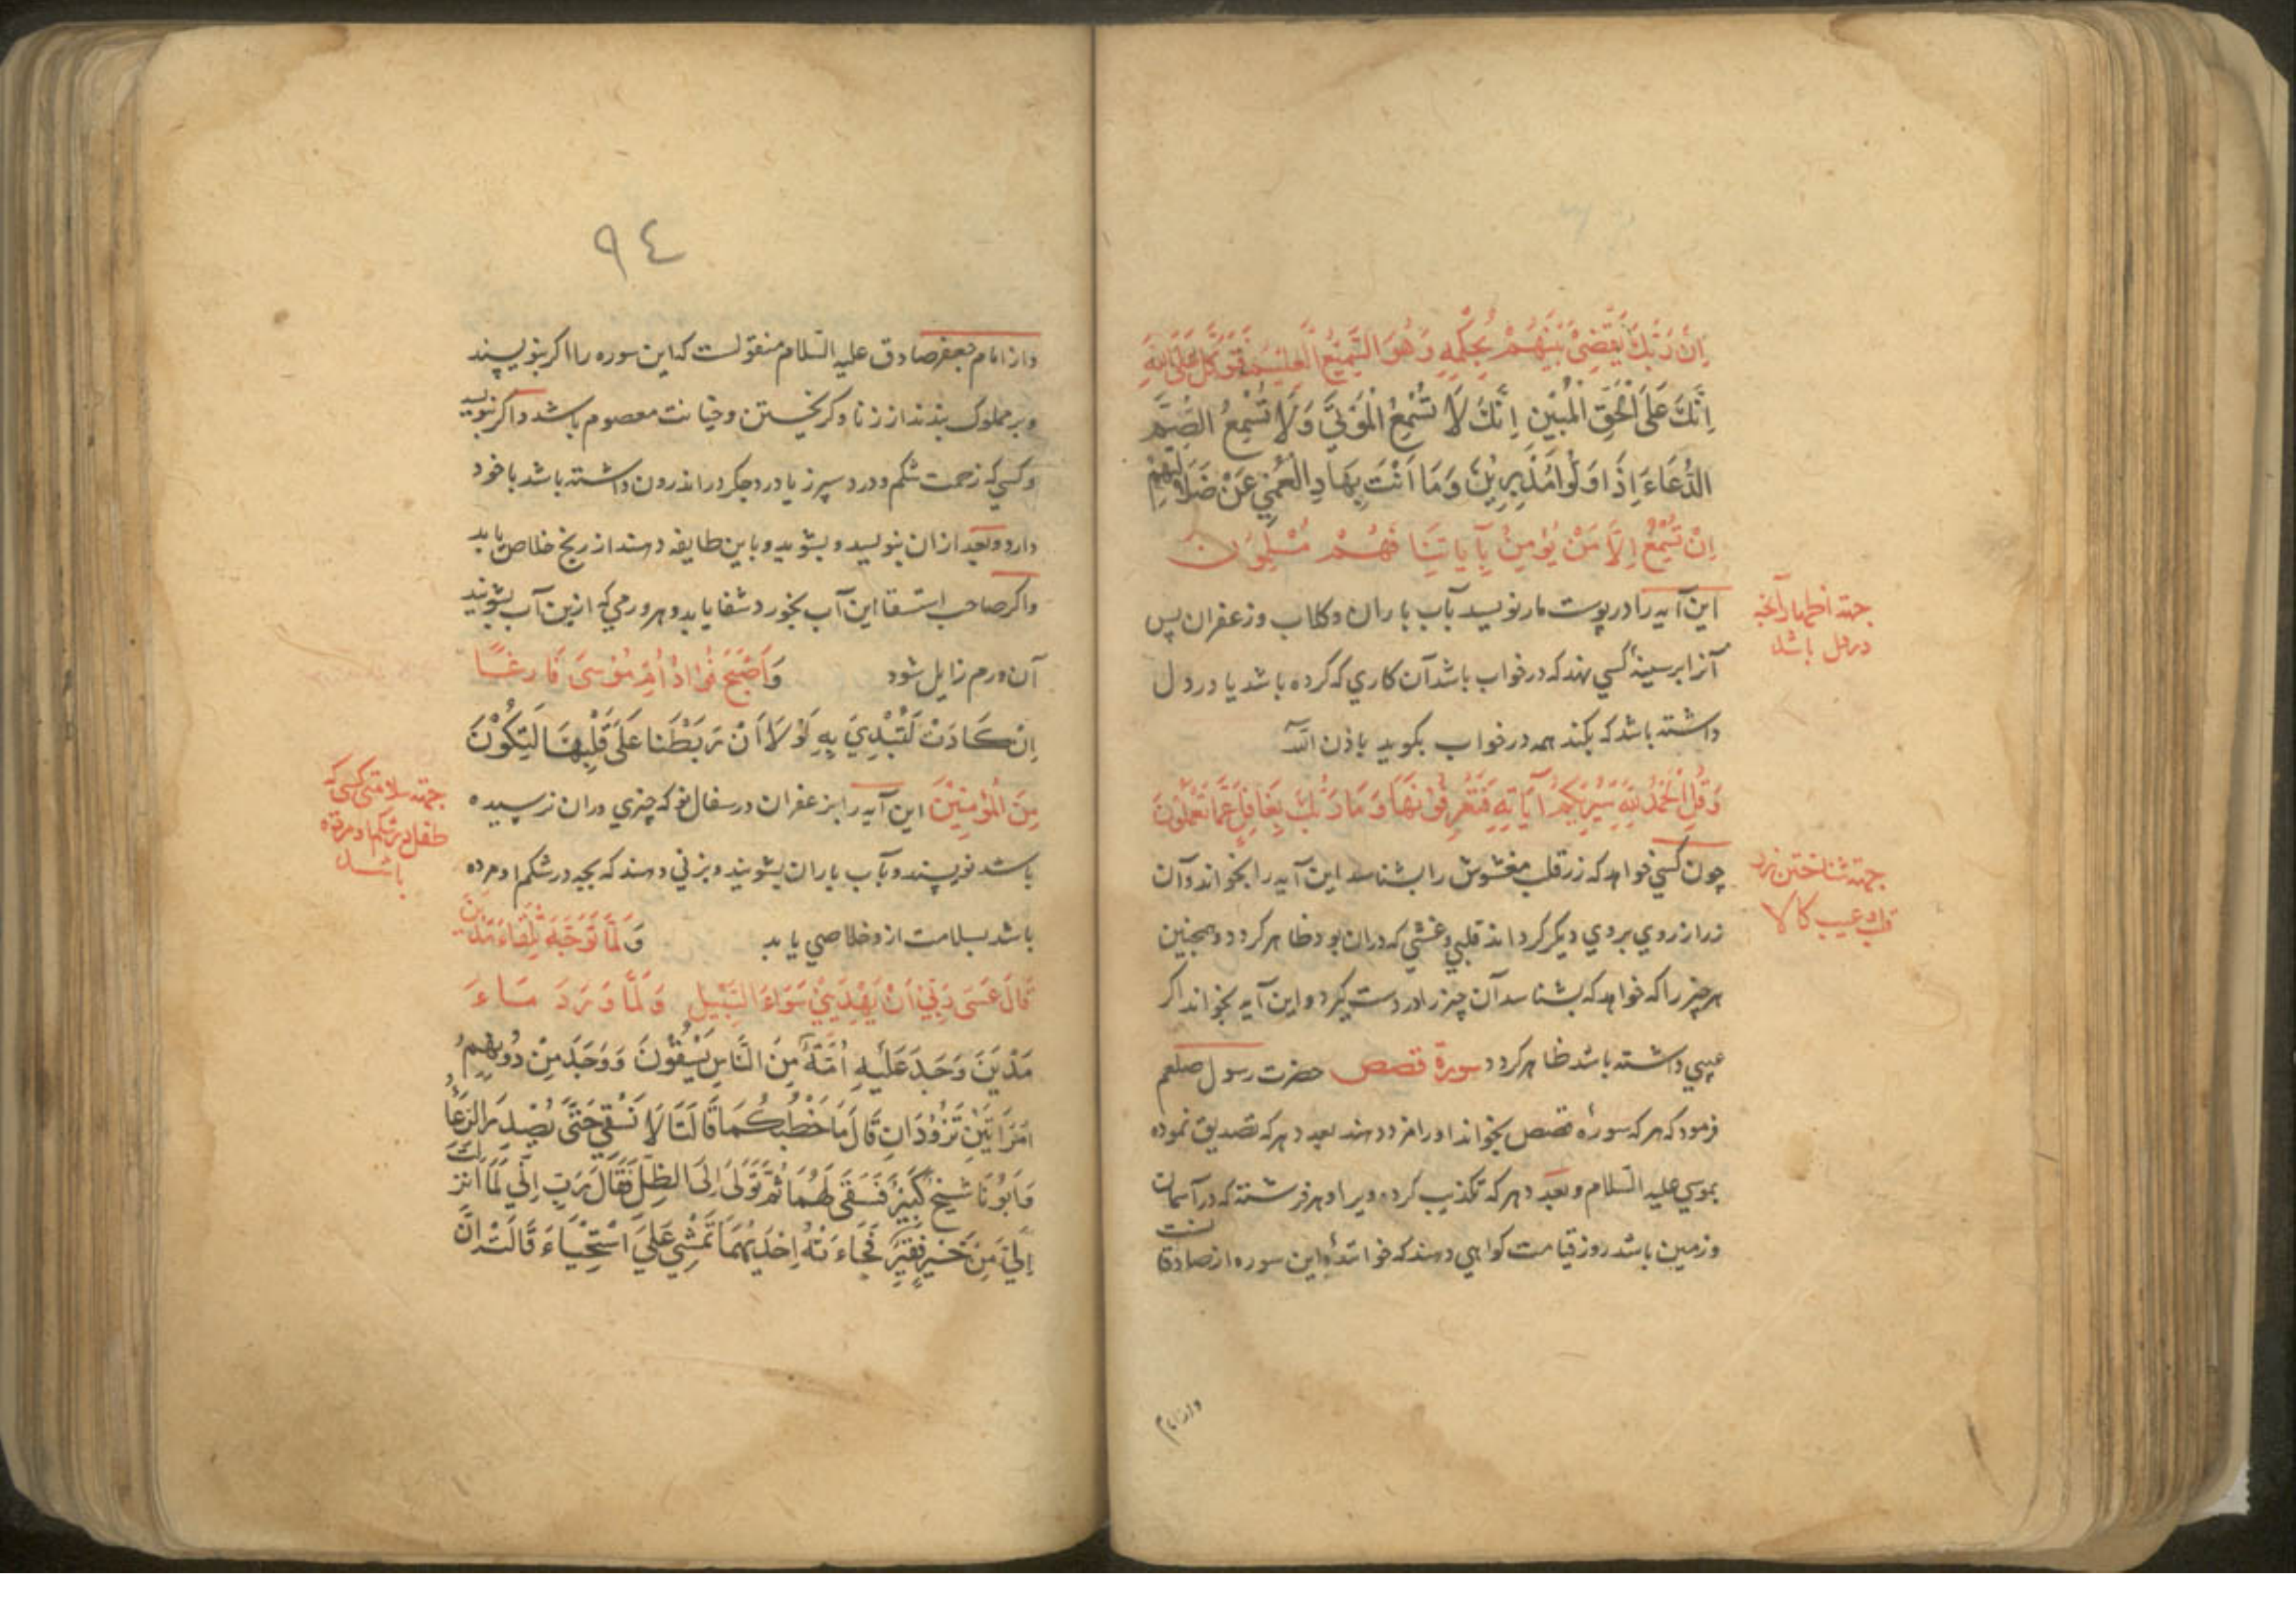 اِنَّ رَبَّكَ يَقْضِىْ بَيْنَهُمْ بِحُكْمِهٖ وَهُوَ السَّمِيْعُ الْعَلِيْمُ فَتَوَكَّلْ عَلَى اللّٰهِ
اِنَّكَ عَلَى الْحَقِّ الْمُبِيْنِ اِنَّكَ لَا تُسْمِعُ الْمَوْتٰى وَلَا تُسْمِعُ الصُّمَّ
الدُّعَاءَ اِذَا وَلَّوْا مُدْبِرِيْنَ وَمَا اَنْتَ بِهَادِ الْعُمْىِ عَنْ ضَلَالَتِهِمْ
اِنْ تُسْمِعُ اِلَّا مَنْ يُؤْمِنُ بِآيَاتِنَا فَهُمْ مُسْلِمُوْنَ
این آیه را در پوست مار نویسد بآب باران و کلاب و زعفران پس
آنرا بر سینهٔ کسی نهد که در خواب باشد آن کاری که کرده باشد یا در دل
داشته باشد که بکند همه در خواب بکوید باذن الله
وَقُلِ الْحَمْدُ لِلّٰهِ سَيُرِيْكُمْ آيَاتِهٖ فَتَعْرِفُوْنَهَا وَمَا رَبُّكَ بِغَافِلٍ عَمَّا تَعْمَلُوْنَ
چون کسی خواهد که زر قلب مغشوش را بشناسد این آیه را بخواند و آن
زر از روی بروی دیکر کرداند قلبی و غشی که در آن بود ظاهر کردد و همچنین
هر چیز را که خواهد که بشناسد آن چیز را در دست کیرد و این آیه بخواند اکر
عیبی داشته باشد ظاهر کردد سورة قصص حضرت رسول صلعم
فرمود که هر که سورهٔ قصص بخواند او را مزد دهند بعدد هر که تصدیق نموده
بموسی علیه السلام و بعدد هر که تکذیب کرده ویرا و هر فرشته که در آسمان
و زمین باشد روز قیامت کواهی دهند که خوانندهٔ این سوره از صادقانست
جهته اظهار آنچه
در دل باشد
جهته شناختن زر
قلب و عیب کالا
واز امام
٩٤
واز امام جعفر صادق علیه السلام منقولست که این سوره را اکر بنویسند
و بر مملوک بندند از زنا و کریختن و خیانت معصوم باشد و اکر بنویسد
و کسی که زحمت شکم و درد سپرز یا درد جکر در اندرون داشته باشد با خود
دارد و بعد از ان بنویسد و بشوید و باین طایفه دهند از رنج خلاص یابد
واکر صاحب استسقا این آب بخورد شفا یابد و هر ورمی که ازین آب بشویند
آن ورم زایل شود وَاَصْبَحَ فُؤَادُ اُمِّ مُوْسَى فَارِغًا
اِنْ كَادَتْ لَتُبْدِىْ بِهٖ لَوْلَا اَنْ رَبَطْنَا عَلٰى قَلْبِهَا لِتَكُوْنَ
مِنَ الْمُؤْمِنِيْنَ این آیه را بزعفران در سفال نو که چیزی در ان نرسیده
باشد نویسند و بآب باران بشویند و بزنی دهند که بچه در شکم او مرده
باشد بسلامت ازو خلاصی یابد وَلَمَّا تَوَجَّهَ تِلْقَاءَ مَدْيَنَ
قَالَ عَسٰى رَبِّىْ اَنْ يَهْدِيَنِىْ سَوَاءَ السَّبِيْلِ وَلَمَّا وَرَدَ مَاءَ
مَدْيَنَ وَجَدَ عَلَيْهِ اُمَّةً مِنَ النَّاسِ يَسْقُوْنَ وَوَجَدَ مِنْ دُوْنِهِمُ
امْرَاَتَيْنِ تَذُوْدَانِ قَالَ مَا خَطْبُكُمَا قَالَتَا لَا نَسْقِىْ حَتّٰى يُصْدِرَ الرِّعَاءُ
وَاَبُوْنَا شَيْخٌ كَبِيْرٌ فَسَقٰى لَهُمَا ثُمَّ تَوَلّٰى اِلَى الظِّلِّ فَقَالَ رَبِّ اِنِّىْ لِمَا اَنْزَلْتَ
اِلَىَّ مِنْ خَيْرٍ فَقِيْرٌ فَجَاءَتْهُ اِحْدٰيهُمَا تَمْشِىْ عَلَى اسْتِحْيَاءَ قَالَتْ اِنَّ
جهته سلامتی کسی که
طفل در شکم او مرده
باشد